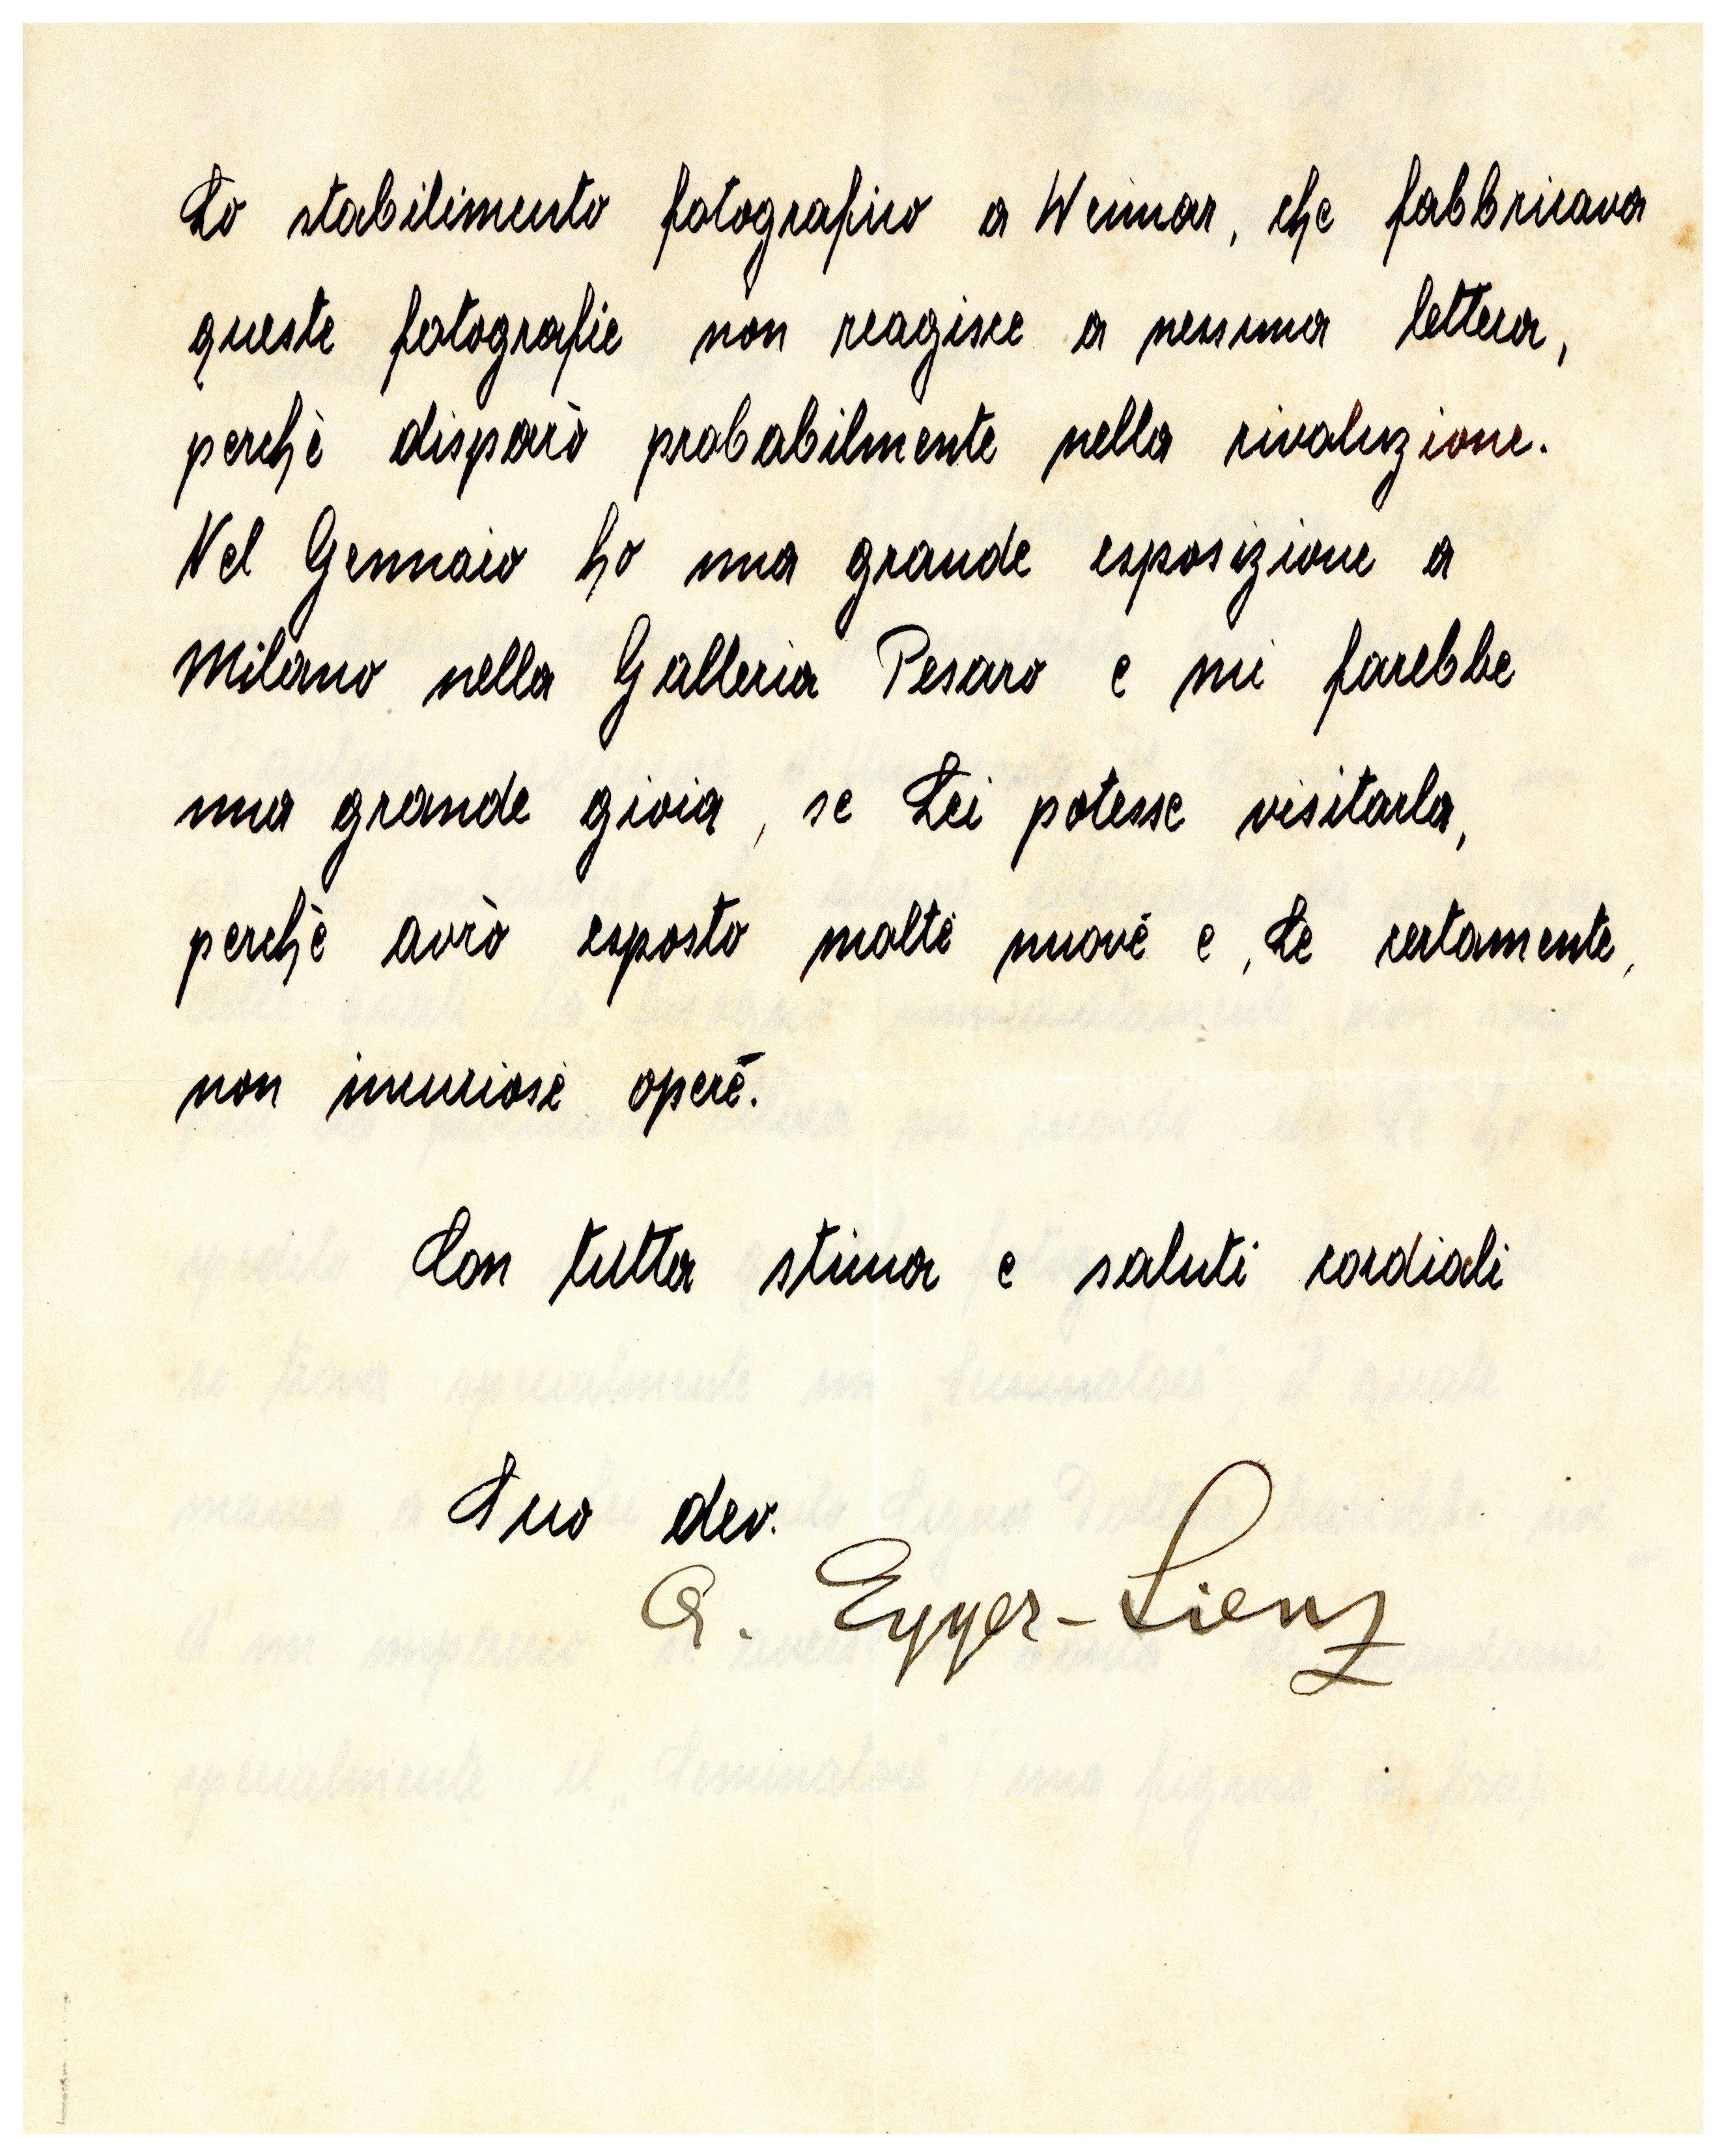 Lo stabilimento fotografico a Weimar, che fabbricava
queste fotografie non reagisce a nessuna lettera,
perchè disparò probabilmente nella rivoluzione.
Nel Gennaio ho una grande esposizione a
Milano nella Galleria Pesaro e mi farebbe
una grande gioia, se Lei potesse visitarla,
perchè avrò esposto molte nuove e, Le certamente,
non incuriose opere.
Con tutta stima e saluti cordiali
Suo dev.
A. Egger-Lienz